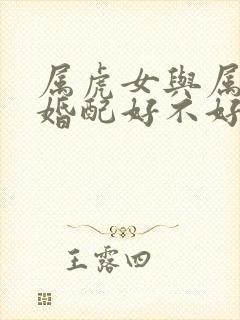 属虎女與属
婚配好不好
王露四